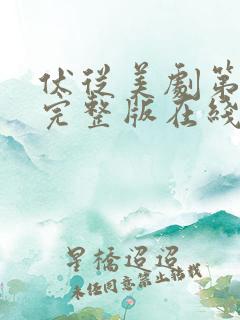 伏從美劇第
完整版在綫
星橋迢迢
未经同意禁止转载